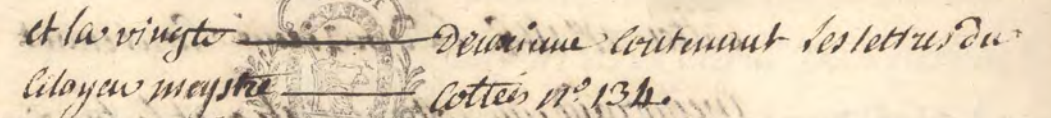 et la vingt ——— Deuxieme Contenant les lettres du
Citoyen maystre ——— Cotteés n.º 134.